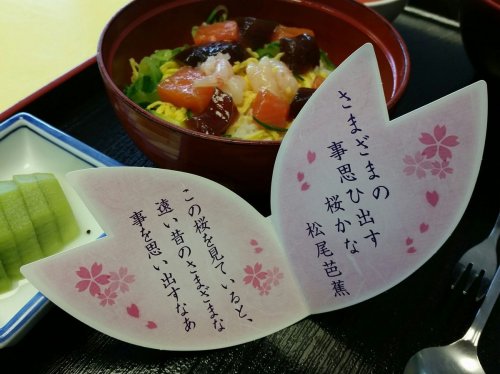 さまざまの
事思ひ出す
桜かな
松尾芭蕉
この桜を見ていると、
遠い昔のさまざまな
事を思い出すなあ